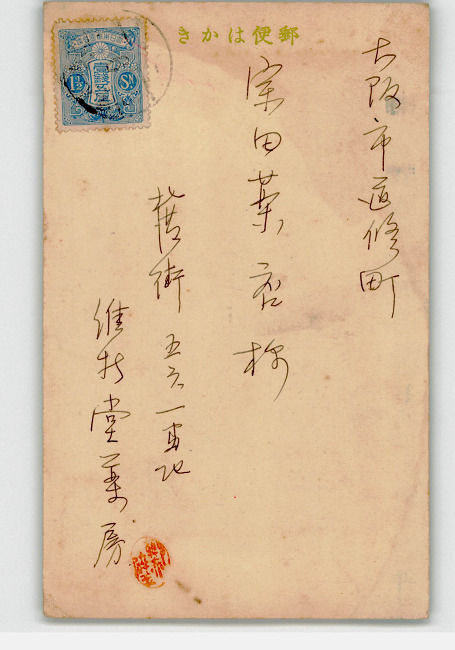 きかは便郵
大阪市道修町
宗田薬店様
旧街五六一番地
維新堂薬房